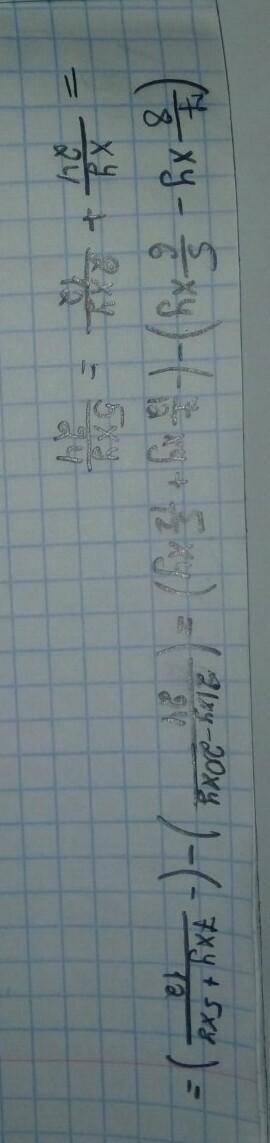 (7/8 xy - 5/6 xy) - (-7/12 xy + 5/12 xy) = (21xy - 20xy / 24) - (- 7xy + 5xy / 12) =
= xy/24 + 2xy/12 = 5xy/24